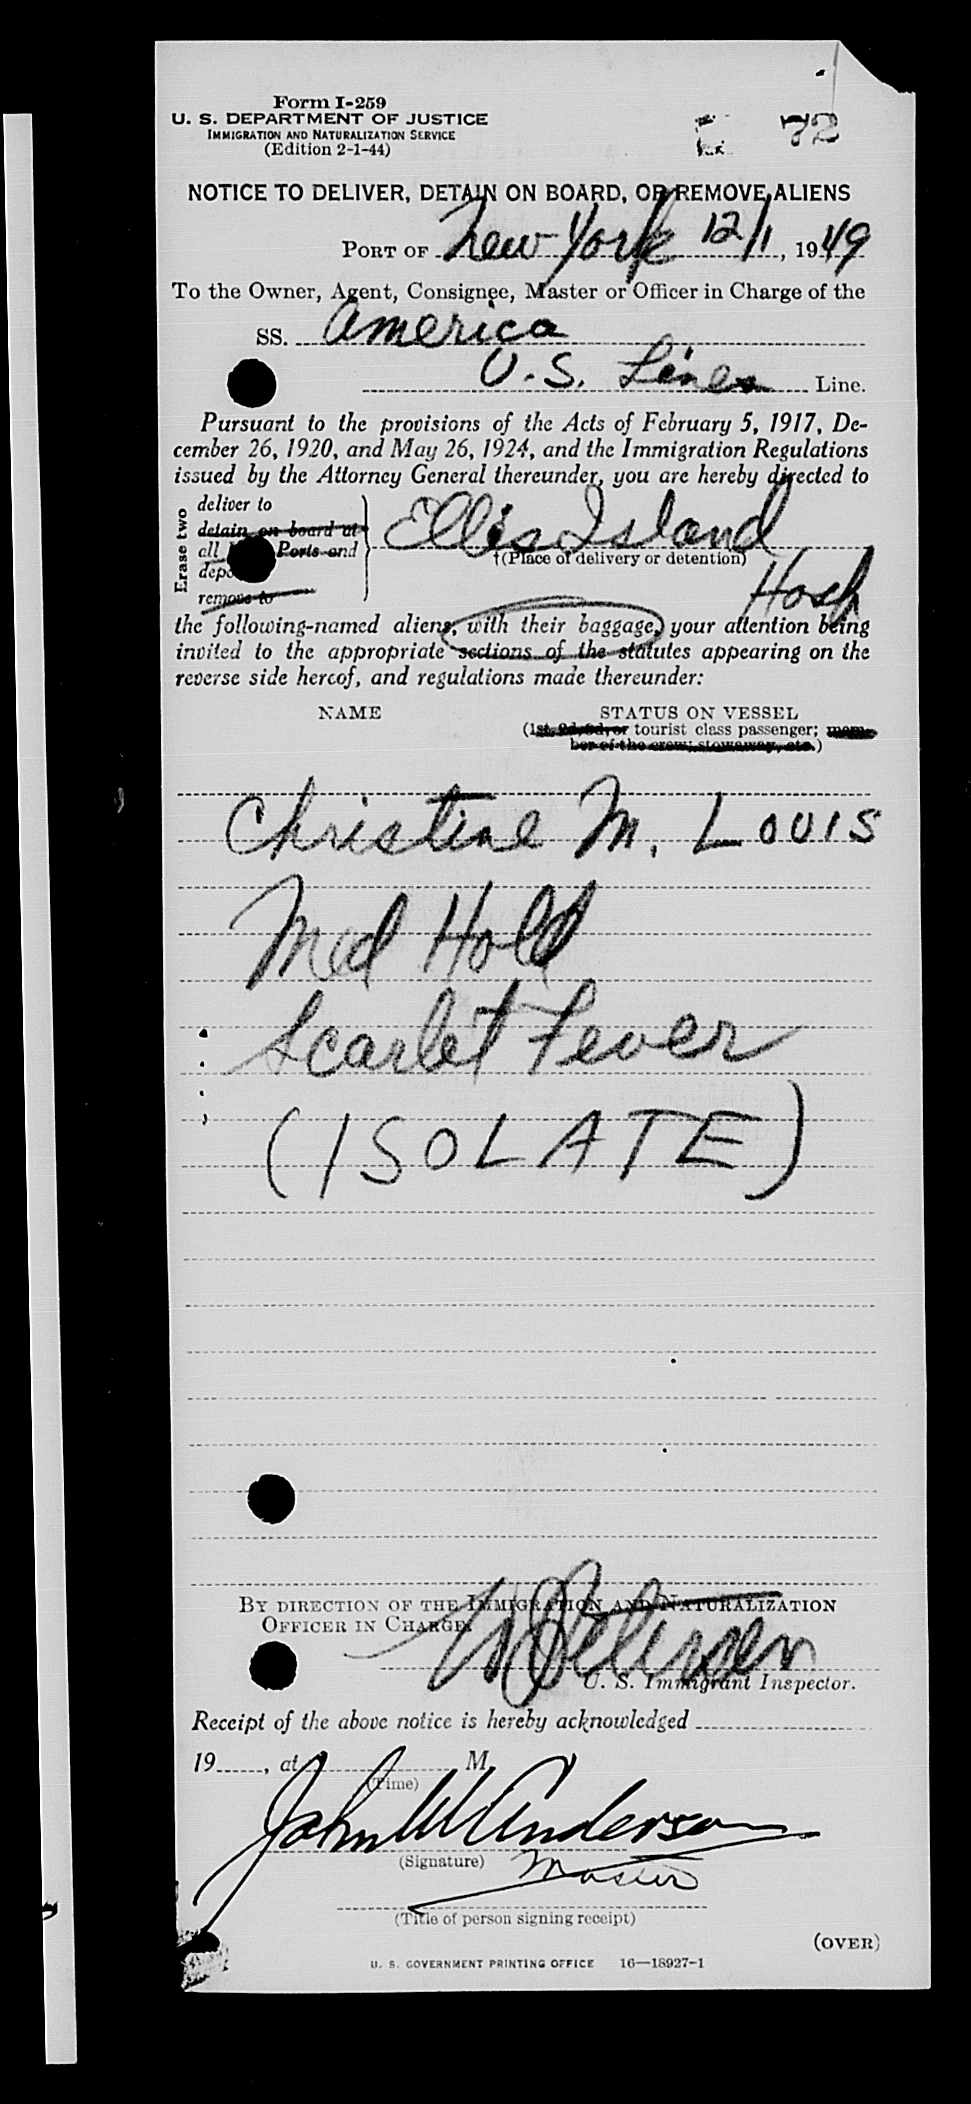 Form I-259
U. S. DEPARTMENT OF JUSTICE
IMMIGRATION AND NATURALIZATION SERVICE
(Edition 2-1-44)
72
NOTICE TO DELIVER, DETAIN ON BOARD, OR REMOVE ALIENS
PORT OF New York 12/1, 1949
To the Owner, Agent, Consignee, Master or Officer in Charge of the
SS. America
U.S. Lines Line.
Pursuant to the provisions of the Acts of February 5, 1917, De-
cember 26, 1920, and May 26, 1924, and the Immigration Regulations
issued by the Attorney General thereunder, you are hereby directed to
Erase two
deliver to
detain on board at
all Ports and
remove to
Ellis Island
(Place of delivery or detention)
Hosp
the following-named aliens, with their baggage, your attention being
invited to the appropriate sections of the statutes appearing on the
reverse side hereof, and regulations made thereunder:
NAME
STATUS ON VESSEL
(1st, 2d, 3d, or tourist class passenger; mem-
ber of the crew; stowaway, etc.)
Christine M. Louis
Med Hold
Scarlet Fever
(ISOLATE)
BY DIRECTION OF THE IMMIGRATION AND NATURALIZATION
OFFICER IN CHARGE.
Petersen
U. S. Immigrant Inspector.
Receipt of the above notice is hereby acknowledged
19 , at M
(Time)
John W Anderson
(Signature)
Master
(Title of person signing receipt)
(OVER)
U. S. GOVERNMENT PRINTING OFFICE 16—18927-1